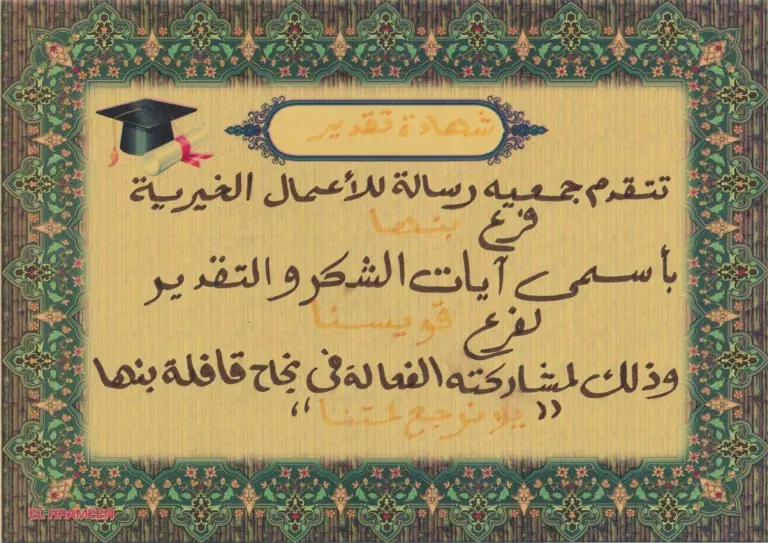 شهادة تقدير
تتقدم جمعيه رسالة للأعمال الخيرية
فرع بنها
بأسمى آيات الشكر والتقدير
لفرع قويسنا
وذلك لمشاركته الفعالة فى نجاح قافلة بنها
"يلا نرجع لمتنا"
EL HRAMEEN